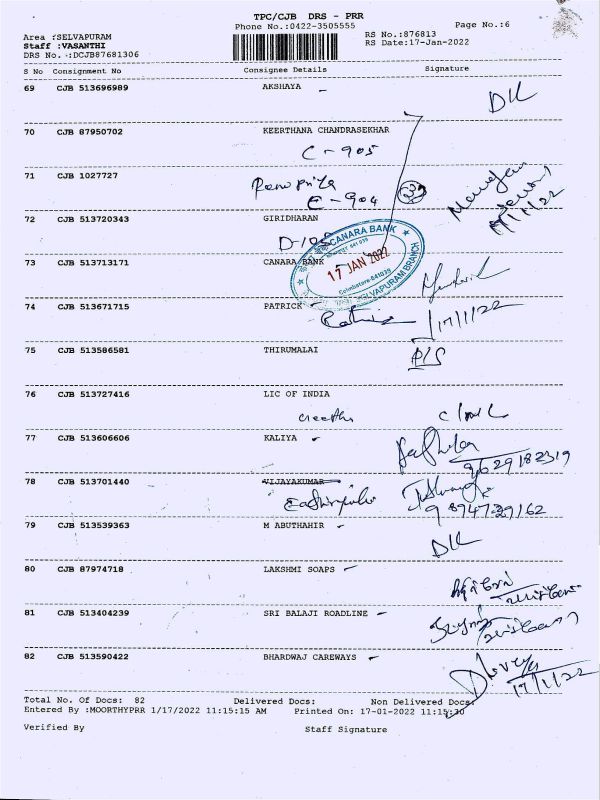 TPC/CJB DRS - PRR
Phone No.:0422-3505555
Page No.:6
Area :SELVAPURAM
Staff :VASANTHI
DRS No. :DCJB87681306
RS No.:876813
RS Date:17-Jan-2022
S No Consignment No Consignee Details Signature
69 CJB 513696989 AKSHAYA
DL
70 CJB 87950702 KEERTHANA CHANDRASEKHAR
C-905
71 CJB 1027727
E-904
72 CJB 513720343 GIRIDHARAN
CANARA BANK
73 CJB 513713171 CANARA BANK
17 JAN 2022
Coimbatore-641026
SELVAPURAM BRANCH
74 CJB 513671715 PATRICK
17/1/22
75 CJB 513586581 THIRUMALAI
P/S
76 CJB 513727416 LIC OF INDIA
Geetha
77 CJB 513606606 KALIYA
9629182319
78 CJB 513701440 VIJAYAKUMAR
9894729162
79 CJB 513539363 M ABUTHAHIR
DL
80 CJB 87974718 LAKSHMI SOAPS
81 CJB 513404239 SRI BALAJI ROADLINE
82 CJB 513590422 BHARDWAJ CAREWAYS
17/1/22
Total No. Of Docs: 82 Delivered Docs: Non Delivered Docs:
Entered By :MOORTHYPRR 1/17/2022 11:15:15 AM Printed On: 17-01-2022 11:15:30
Verified By Staff Signature